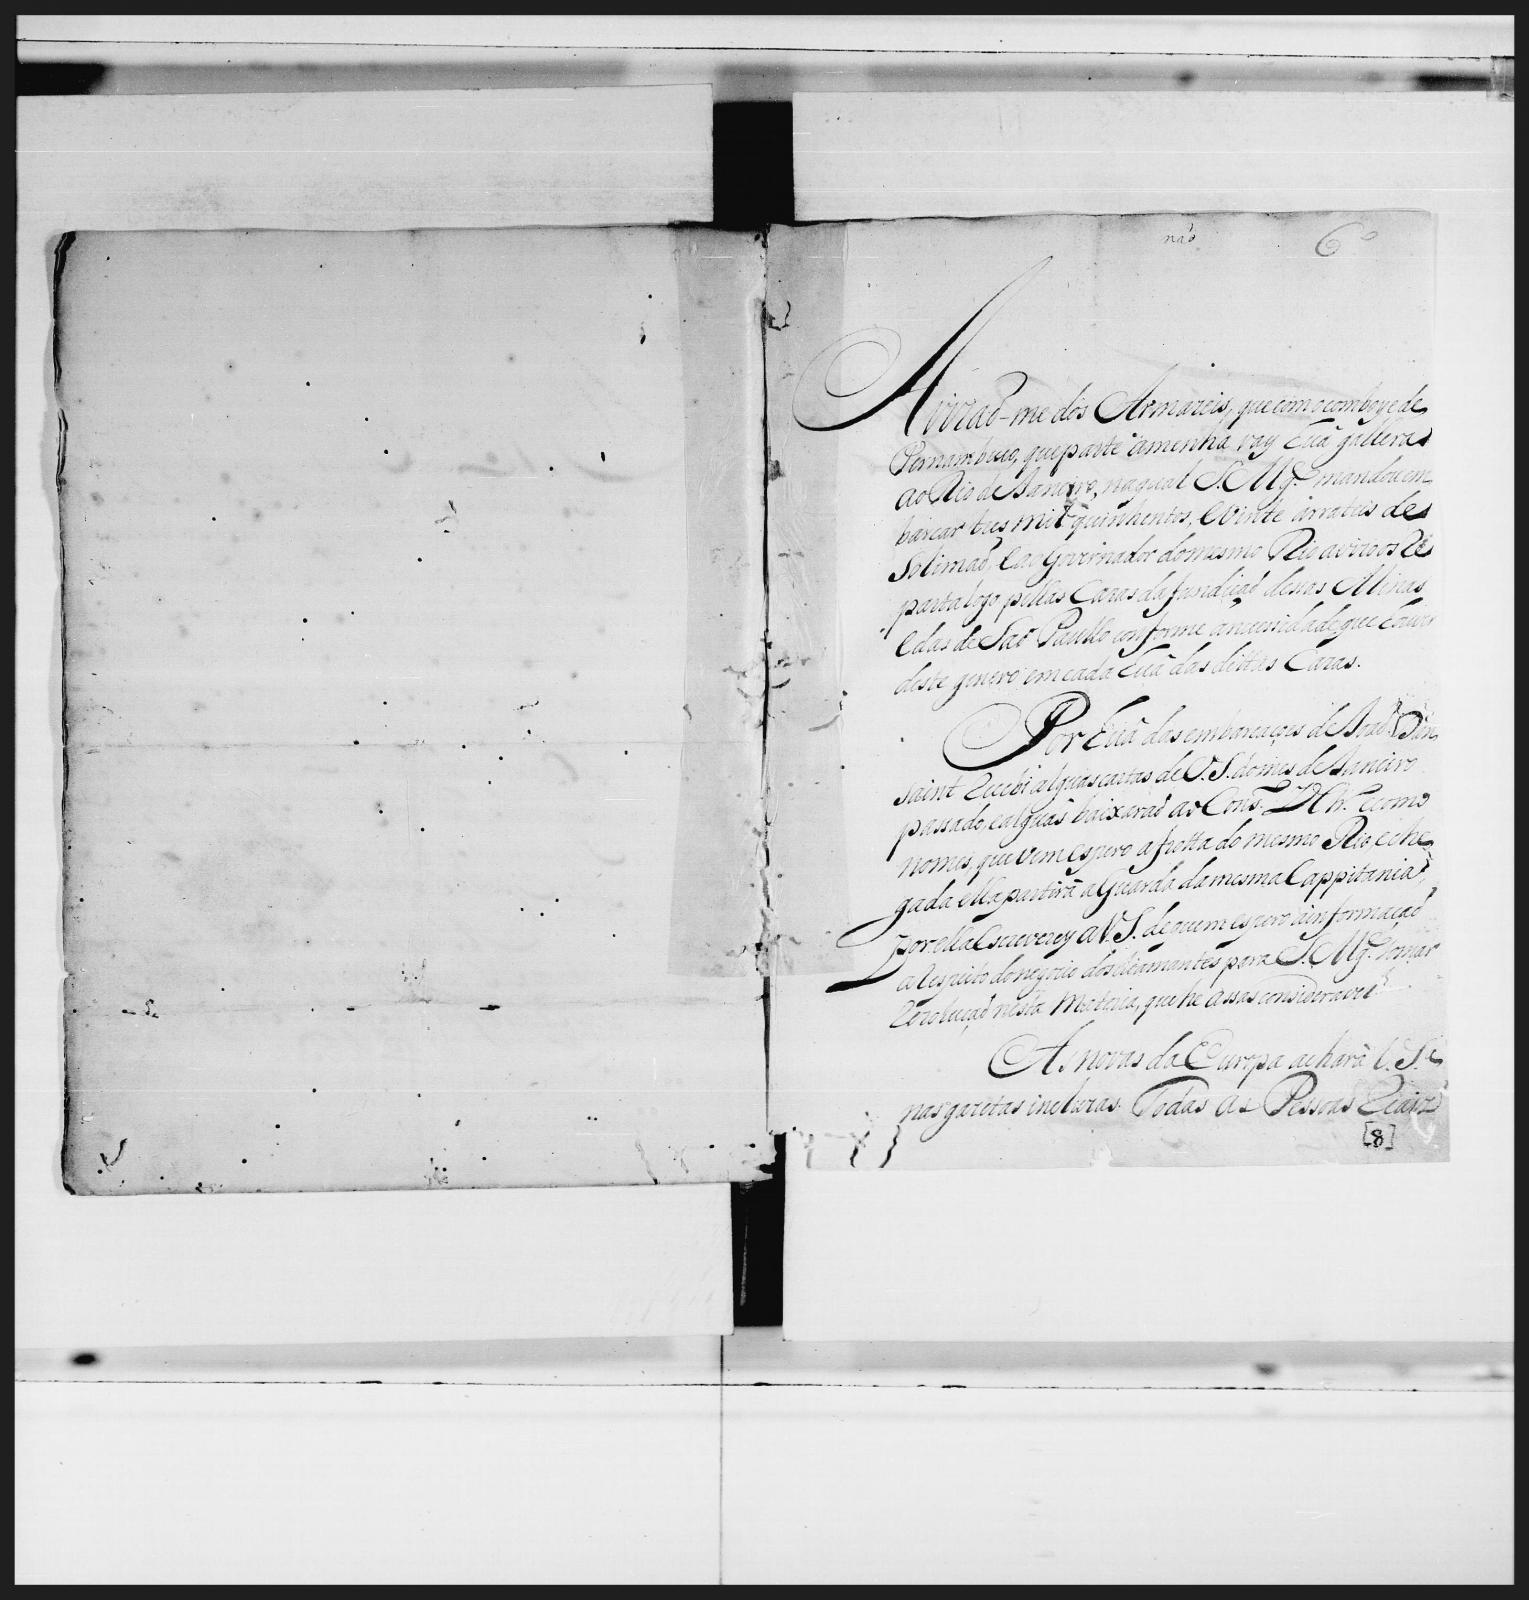 não 6º
Avizão-me dos Armazeis, que com o comboye de
Pernambuco, que parte amenha, vay huã gallera
ao Rio de Janeiro, na qual S. Mg.e mandou em
barcar tres mil quinhentos, e vinte arrateis de
Solimão, e ao Governador do mesmo Rio avizo os Re
parta logo pellas Cazas da fundição dessas Minas
e das de São Paullo conforme a necessidade que houver
deste genero em cada huã das dittas Cazas.
Por huã das embarcações de João
saint Recebi alguãs cartas de V. S. do mes de Janeiro
passado, e alguãs baixarão ao Cons.o e como
no mes, que vem espero a frotta do mesmo Rio, e che
gada ella partirá a Guarda da mesma Cappitania,
por ella Escreverey a V. S. de quem espero a informação
a Respeito do negocio dos diamantes para S. Mg.e tomar
Rezolução nesta Materia, que he assas consideravel.
As novas da Europa achará V. S.
nas gazetas incluzas. Todas as Pessoas Reaes
[8]